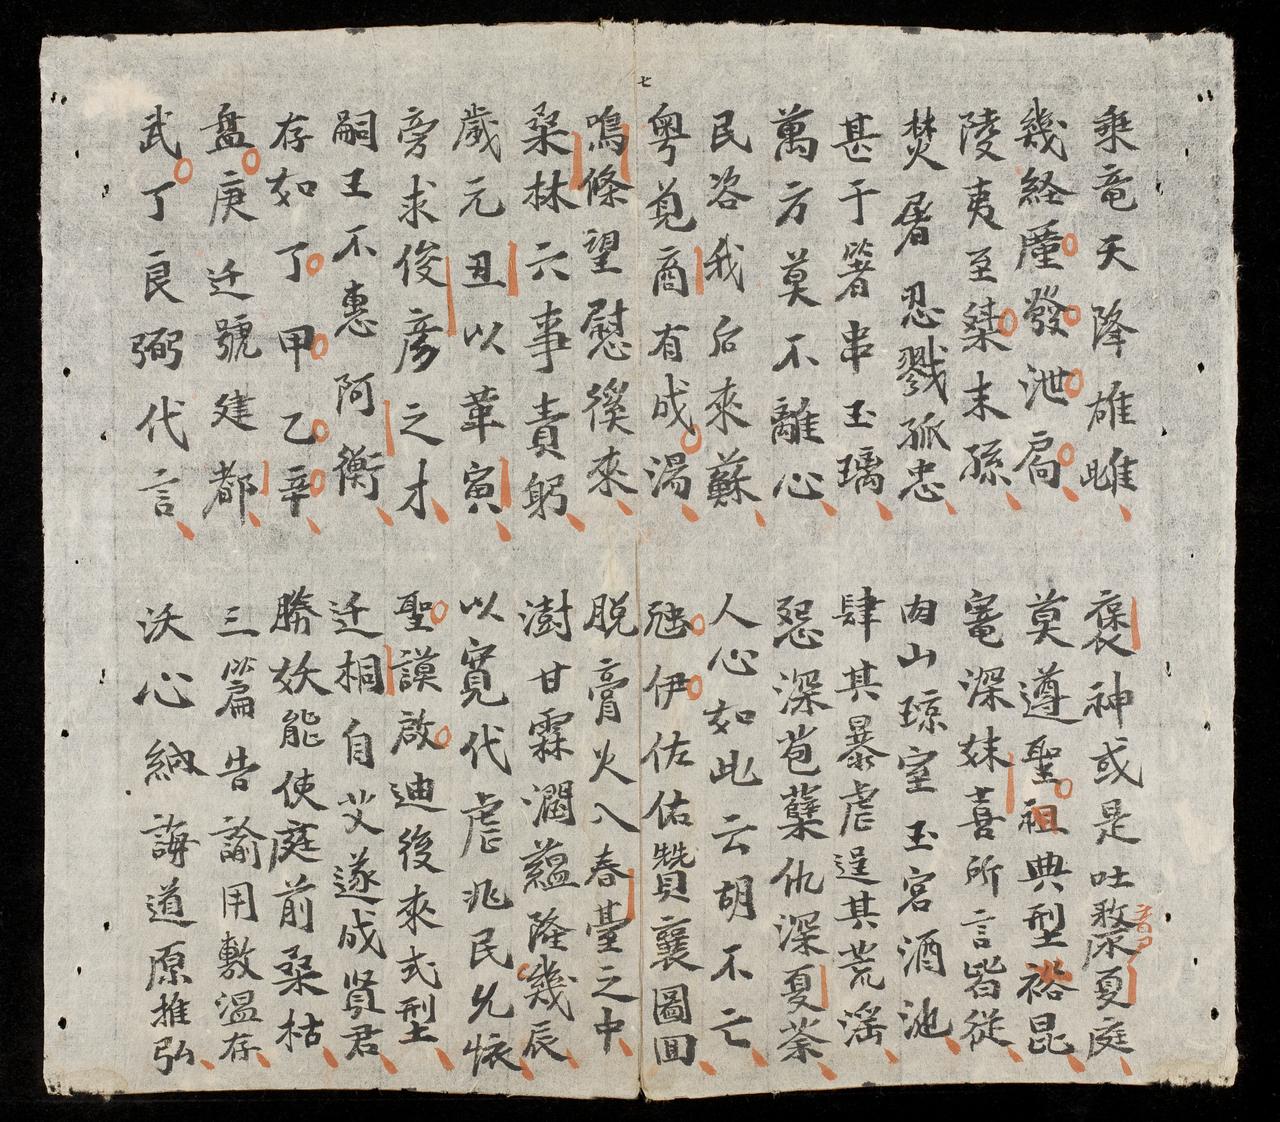 七
乘竜天降雄雌
褒神或是吐漦夏庭
幾経廑發泄扃
莫遵聖祖典型裕昆
陵夷至桀末孫
寵深妹喜所言皆從
焚屠忍戮孤忠
肉山琼室玉宮酒池
甚于箸串玉璃
肆其暴虐逞其荒滛
萬方莫不離心
怨深苞蘖仇深夏荼
民咨我后來蘇
人心如此云胡不亡
粤覓商有成湯
虺伊佐佑贊襄圖囬
鳴條望慰徯來
脫膏火入春臺之中
桒林六事責躬
澍甘霖潤蘊隆幾辰
歲元丑以革寅
以寬代虐兆民允懷
旁求俊彥之才
聖謨啟迪後來式型
嗣王不惠阿衡
迁桐自艾遂成賢君
存如丁甲乙辛
勝妖能使庭前桒枯
盘庚迁號建都
三篇告諭用敷溫存
武丁良弼代言
沃心納誨道原推弘